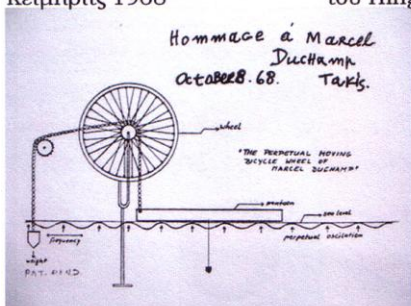 κειμπριτς 1968
του Πηγ
Hommage á Marcel
Duchamp
October 8. 68. Takis.
wheel
"THE PERPETUAL MOVING
BICYCLE WHEEL OF
MARCEL DUCHAMP"
pontoon
sea level
frequency
perpetual oscilation
weight
PAT. PEND.